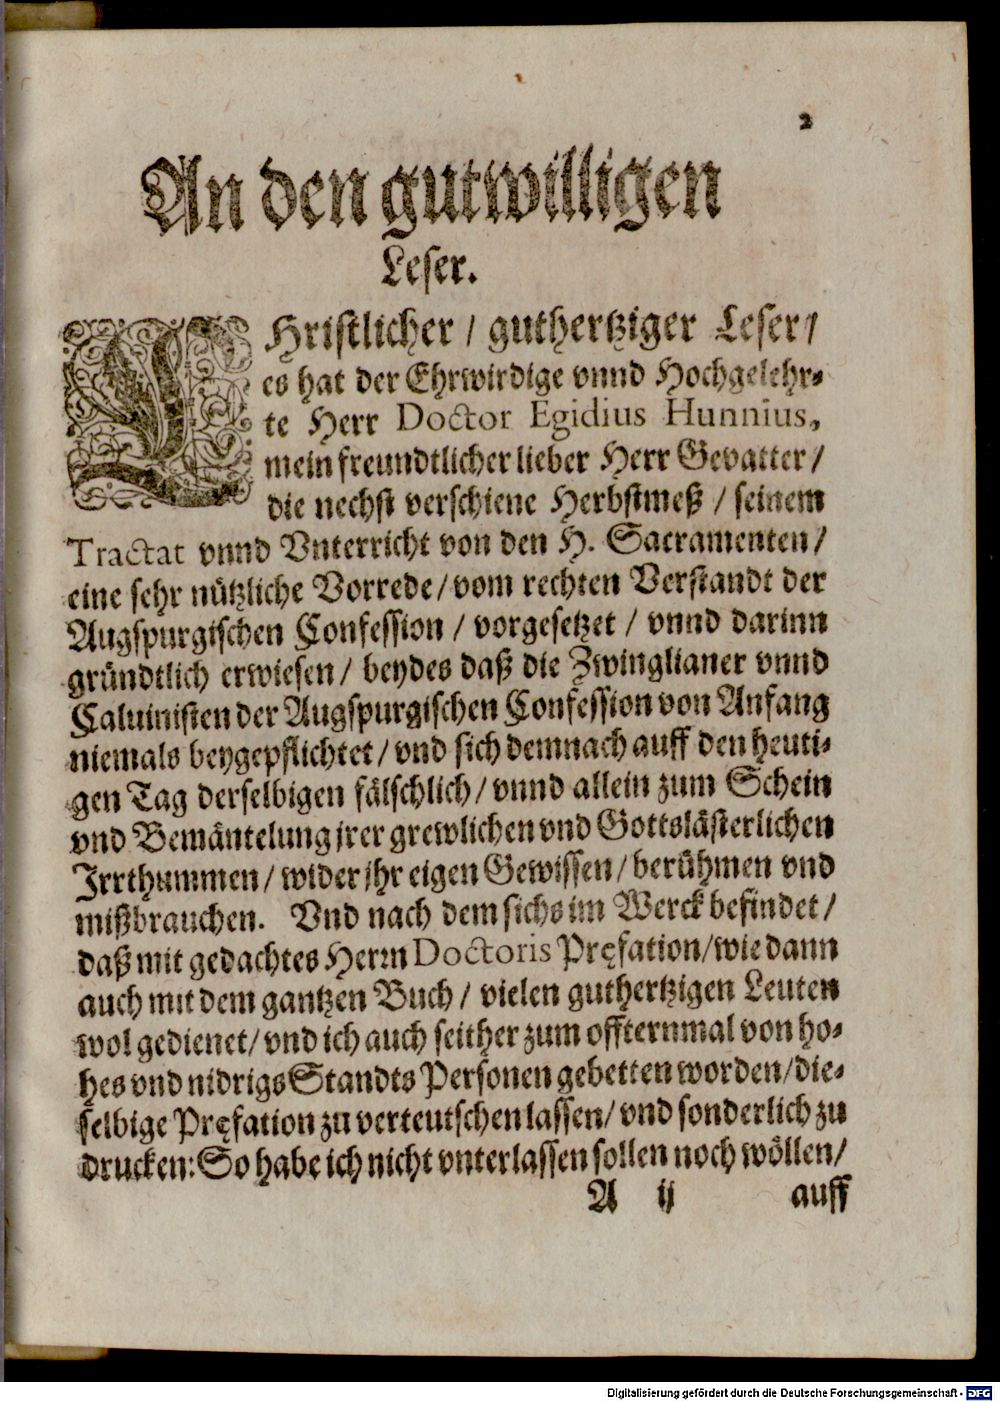 2
An den gutwilligen
Leser.
CHristlicher / guthertziger Leser /
es hat der Ehrwirdige vnnd Hochgelehr-
te Herr Doctor Egidius Hunnius,
mein freundtlicher lieber Herr Gevatter /
die nechst verschiene Herbstmeß / seinem
Tractat vnnd Vnterricht von den H. Sacramenten /
eine sehr nützliche Vorrede / vom rechten Verstandt der
Augspurgischen Confession / vorgesetzet / vnnd darinn
gründtlich erwiesen / beydes daß die Zwinglianer vnnd
Caluinisten der Augspurgischen Confession von Anfang
niemals beygepflichtet / vnd sich demnach auff den heuti-
gen Tag derselbigen fälschlich / vnnd allein zum Schein
vnd Bemäntelung jrer grewlichen vnd Gottslästerlichen
Irrthummen / wider jhr eigen Gewissen / berühmen vnd
mißbrauchen. Vnd nach dem sichs im Werck befindet /
daß mit gedachtes Herrn Doctoris Pręfation / wie dann
auch mit dem gantzen Buch / vielen guthertzigen Leuten
wol gedienet / vnd ich auch seither zum offternmal von ho-
hes vnd nidrigs Standts Personen gebetten worden / die-
selbige Pręfation zu verteutschen lassen / vnd sonderlich zu
drucken: So habe ich nicht vnterlassen sollen noch wöllen /
A ij auff
Digitalisierung gefördert durch die Deutsche Forschungsgemeinschaft - DFG